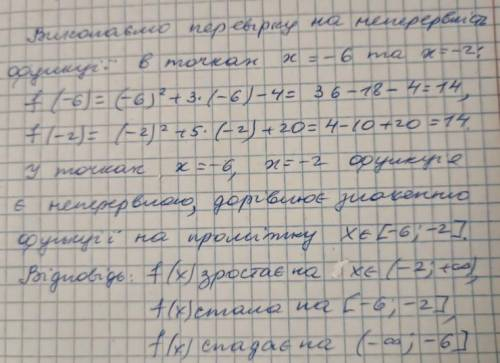 Виконаємо перевірку на неперервність
функції в точках x = -6 та x = -2:
f(-6) = (-6)² + 3·(-6) - 4 = 36 - 18 - 4 = 14,
f(-2) = (-2)² + 5·(-2) + 20 = 4 - 10 + 20 = 14.
У точках x = -6, x = -2 функція
є неперервною, дорівнює значенню
функції на проміжку x ∈ [-6; -2].
Відповідь: f(x) зростає на x ∈ (-2; +∞),
f(x) стала на [-6; -2],
f(x) спадає на (-∞; -6]